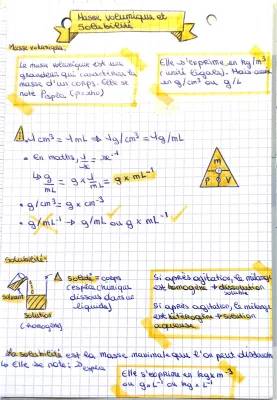 Masse volumique et
Solubilité
Masse volumique:
La masse volumique est une
grandeur qui caractérise la
masse d'un corps. Elle se
note Pespèce (p=rho)
Elle s'exprime en kg/m³
(unité légale). Mais aussi
en g/cm³ ou g/L
⚠ 1cm³ = 1mL → 1g/cm³ = 1g/mL
• En maths, 1/x = x⁻¹
↳ g/mL = g × 1/mL = g × mL⁻¹
• g/cm³ = g × cm⁻³
• g/mL⁻¹ → g/mL ou g × mL⁻¹
m
P
V
Solubilité:
Solvant
Solution
(homogène)
soluté = corps
(espèce chimique
dissous dans un
liquide)
Si après agitation, le mélange
est homogène → dissolution
soluble
Si après agitation, le mélange
est hétérogène → solution
aqueuse
La solubilité est la masse maximale que l'on peut dissoudre
↳ Elle se note: S espèce
Elle s'exprime en kg × m⁻³
ou g × L⁻¹ ou kg × L⁻¹